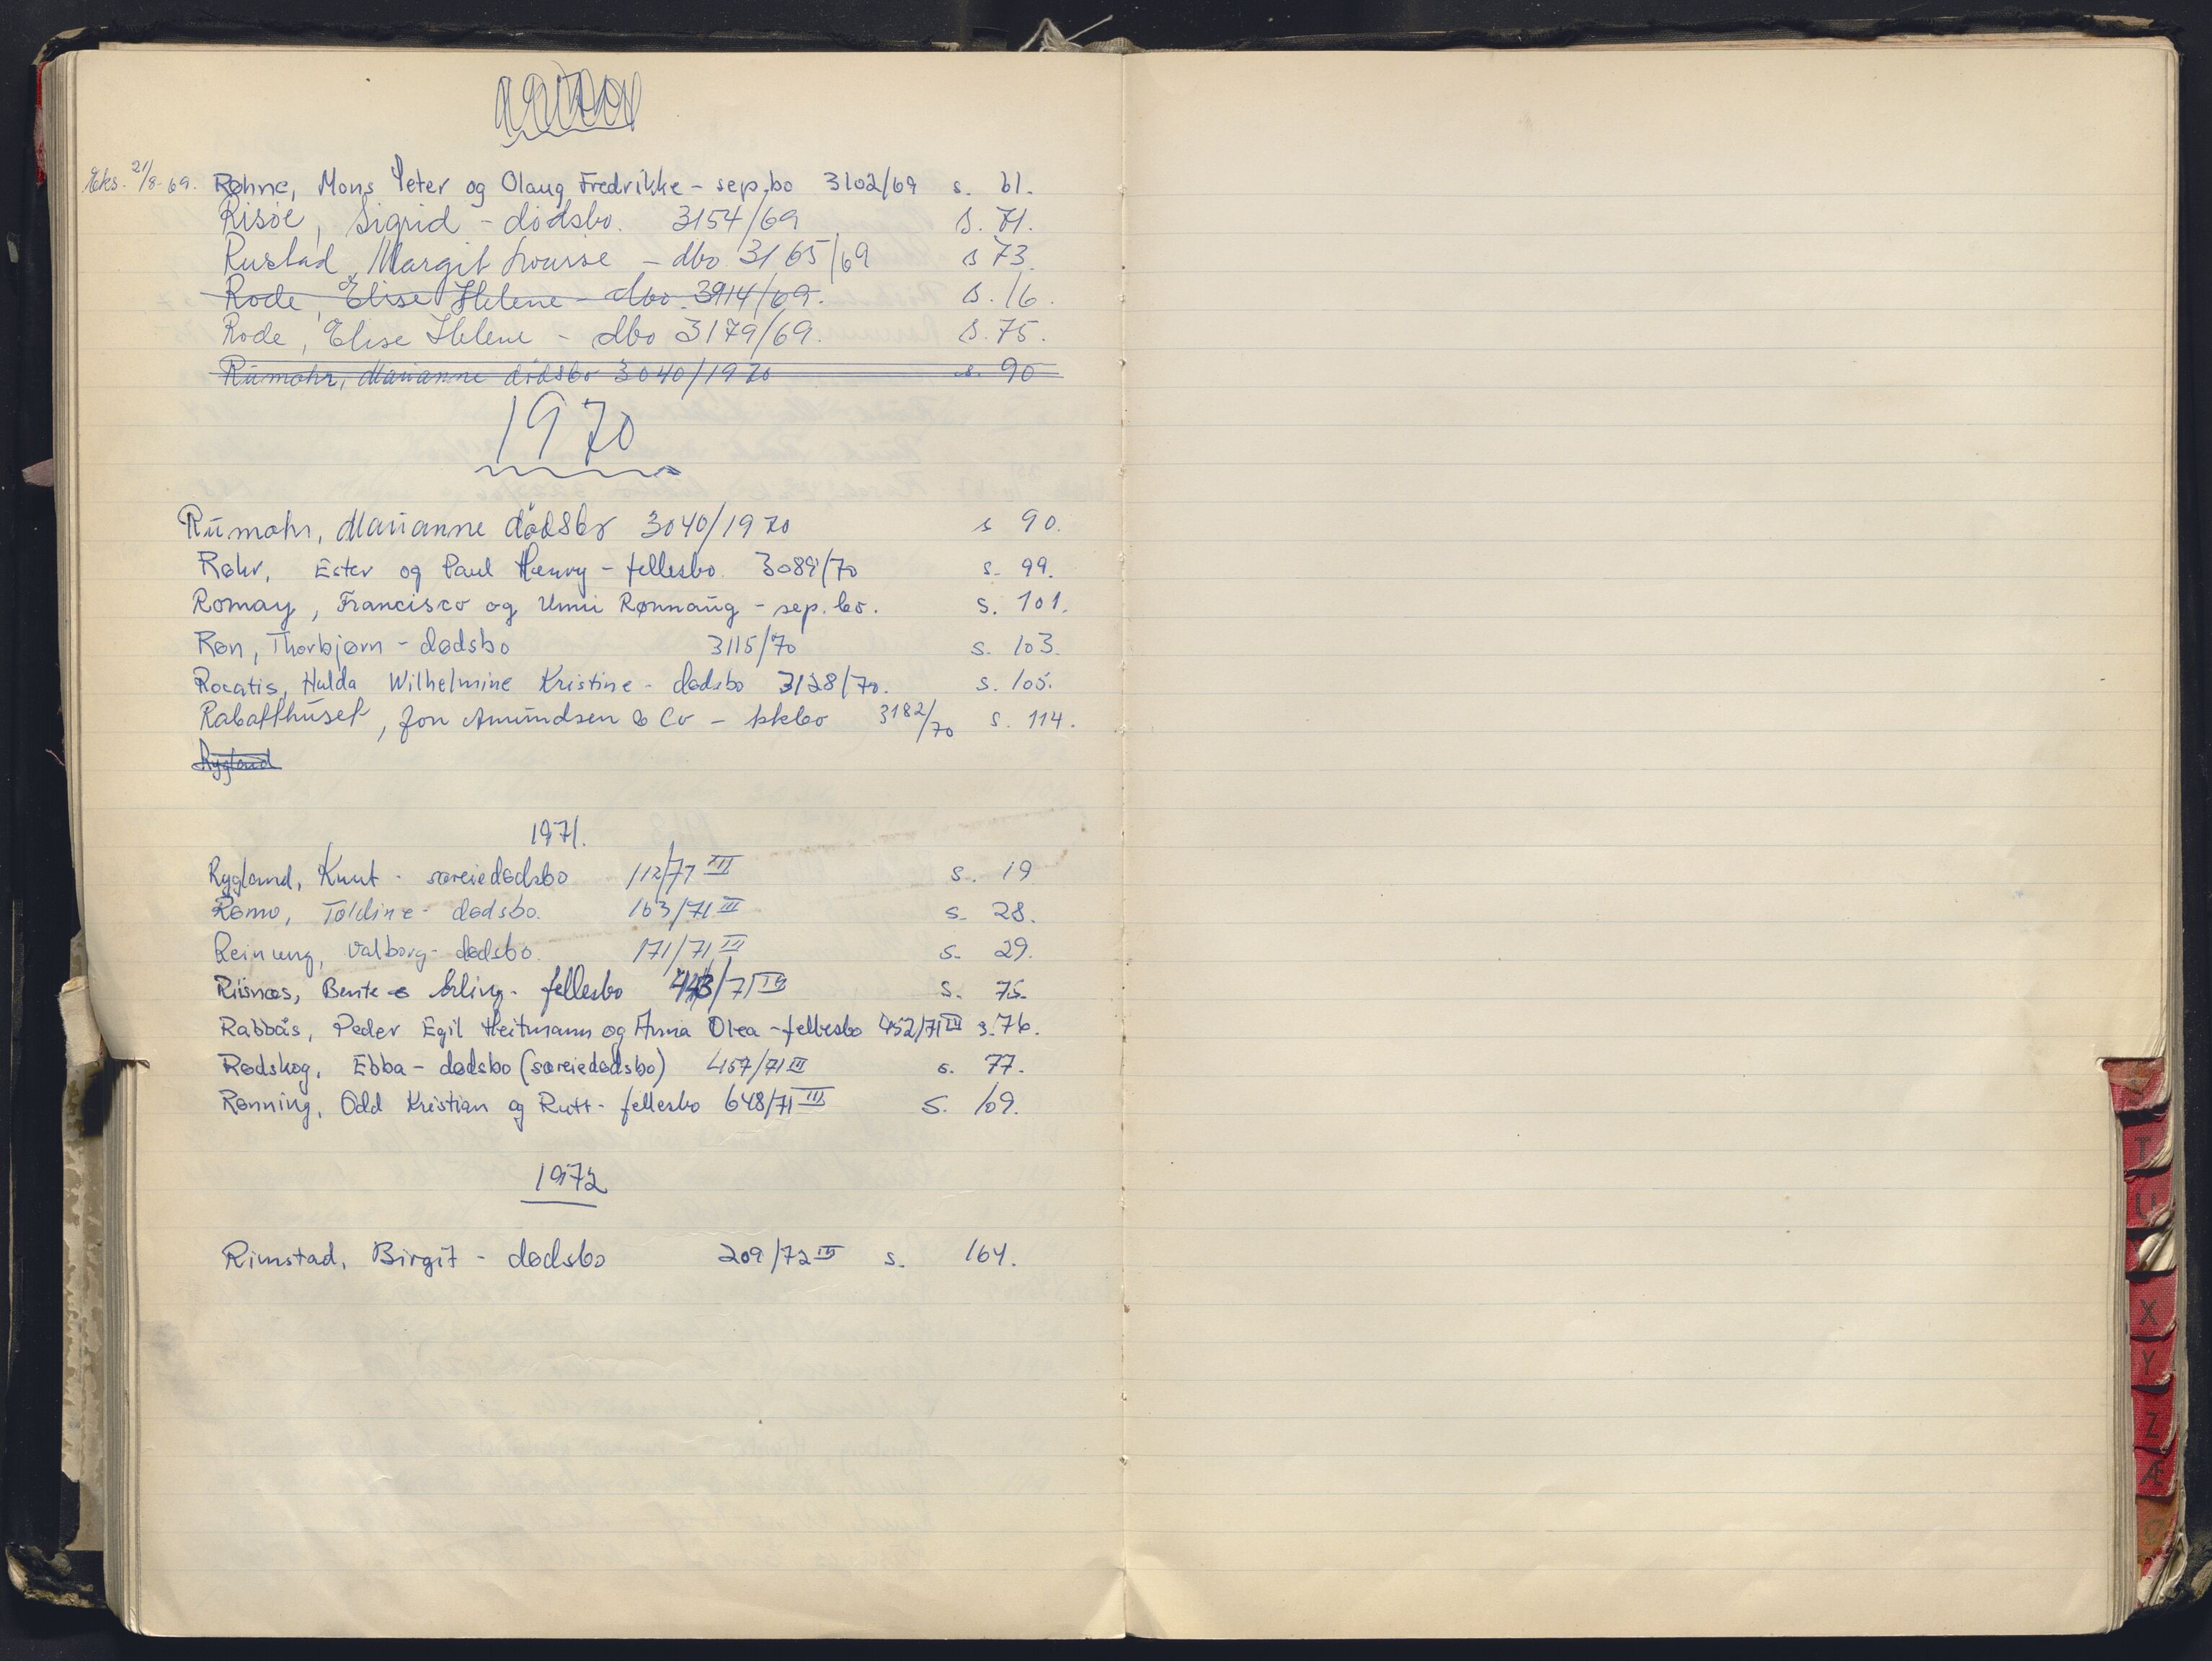 Eks. 21/8-69. Røhne, Mons Peter og Olaug Fredrikke - sep.bo 3102/69 s. 61.
Risöe, Sigrid - dödsbo. 3154/69 s. 71.
Rustad, Margit Lovise - dbo 3165/69 s 73.
Rode, Elise Helene - dbo. 3914/69. s. 16.
Rode, Elise Helene - dbo 3179/69. s. 75.
Rümohr, Marianne dödsbo 3040/1970 s. 90
1970
Rümohr, Marianne dödsbo 3040/1970 s 90.
Røhr, Ester og Paul Henry - fellesbo. 3089/70 s. 99.
Romay, Francisco og Unni Rønnaug - sep. bo. s. 101.
Røn, Thorbjørn - dødsbo 3115/70 s. 103.
Rocatis, Hulda Wilhelmine Kristine - dødsbo 3128/70. s. 105.
Rabatthuset, Jon Amundsen & Co - kkbo 3182/70 s. 114.
Rygland
1971.
Rygland, Knut - særeiedødsbo 112/71 III s. 19
Rømo, Toldine - dødsbo. 163/71 III s. 28.
Reinung, Valborg - dødsbo. 171/71 III s. 29.
Riisnæs, Bente & Erling - fellesbo 443/71 III s. 75.
Rabbås, Peder Egil Heitmann og Anna Olea - fellesbo 452/71 III s. 76.
Rødskog, Ebba - dødsbo (særeiedødsbo) 457/71 III s. 77.
Rønning, Odd Kristian og Rutt - fellesbo 648/71 III s. 109.
1972
Rimstad, Birgit - dødsbo 209/72 III s. 164.
T
U
X
Y
Z
Æ
Ø